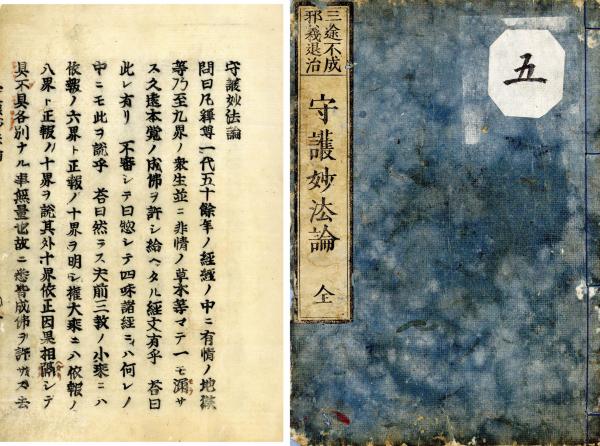 三途不成
邪義退治
守護妙法論
全
五
守護妙法論
問曰凡釋尊一代五十餘年ノ経経ノ中ニ有情ノ地獄
等乃至九界ノ衆生並ニ非情ノ草木等マテ一モ漏サ
ス久遠本覚ノ成佛ヲ許シ給ヘタル経文有乎 答曰
此レ有リ 不審シテ曰惣シテ四味諸経ニハ何レノ
中ニモ此ヲ説乎 答曰然ラス夫前三教ノ小乗ニハ
依報ノ六界ト正報ノ十界ヲ明シ権大乗ニハ依報ノ
八界ト正報ノ十界ヲ説其外十界依正因果相隔シテ
具不具各別ナル事無量也故ニ悉皆成佛ヲ許サス去